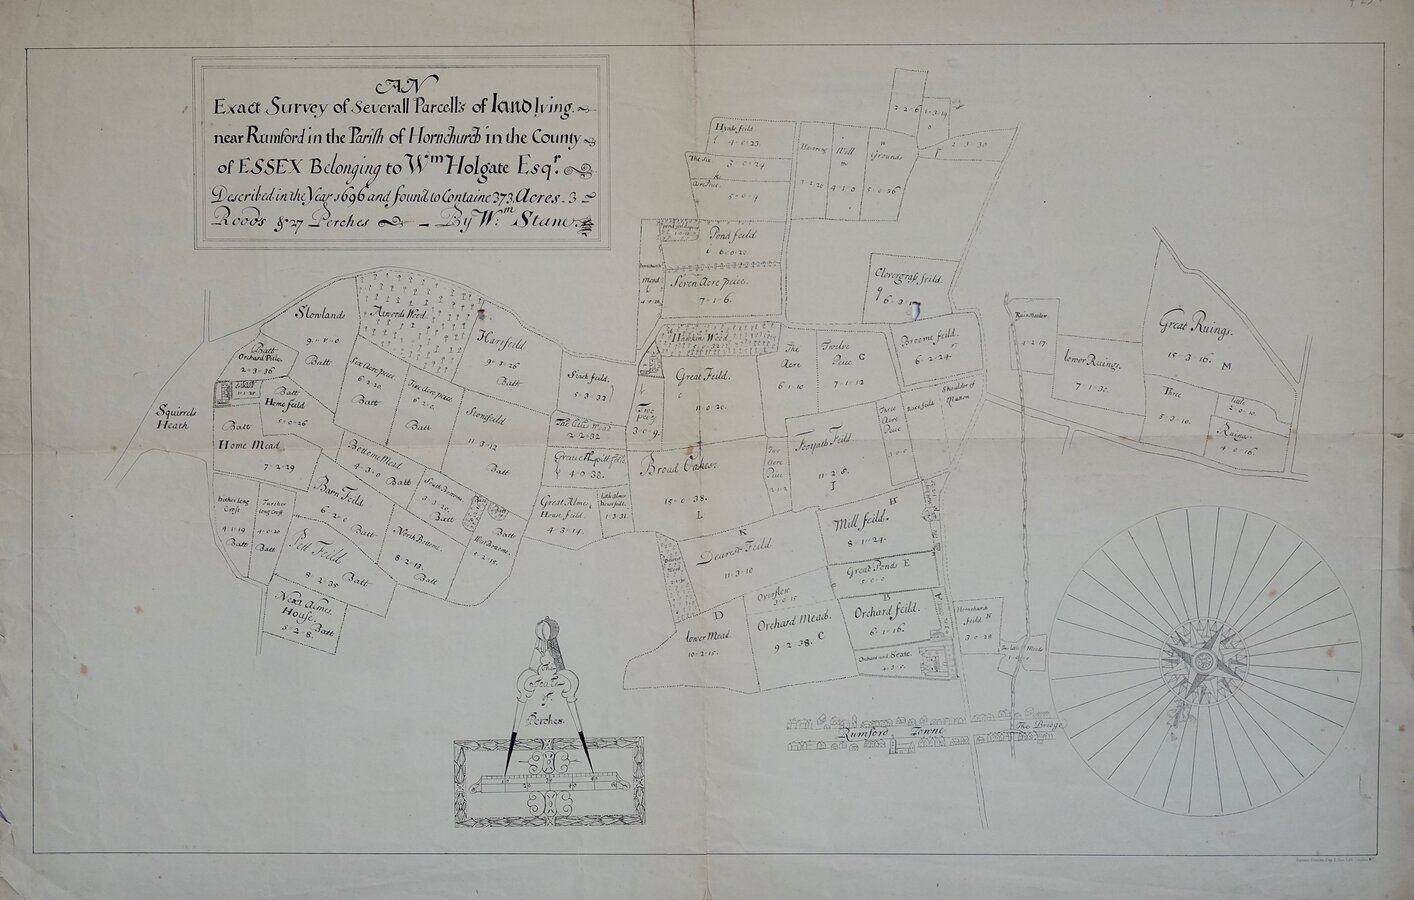 AN
Exact Survey of Severall Parcells of land lying
near Rumford in the Parish of Hornchurch in the County
of ESSEX Belonging to Wm Holgate Esqr.
Described in the Year 1696 and found to Containe 373 Acres - 3
Roods & 27 Perches - By Wm. Stane
Hynde feild
4=0=23
3=0=24
5=0=9
2=2=6
2=3=30
Well
Grounds
4=1=0
5=0=36
Pond feild
6=0=20
Seven Acre peice.
7=1=6.
Clovergrass feild.
Hawkins Wood
Great Feild.
11=0=20.
The
Acre
6=1=10
Twelve
Peice C
7=1=12
Broome feild.
6=2=24
Shoulder of
Mutton
Great Ruings.
15=3=16.
M
lower Ruings.
7=1=30.
Three
5=3=10.
little
2=0=10.
Ruins
4=0=16.
4=2=17
Slowlands
Batt
Atwoods Wood
Harsfeild
9=2=26
Batt
Batt
Orchard Peice.
2=3=36
Six Acre peice
6=2=20.
Batt
Five Acre peice
6=2=0.
Batt
Stonyfeild
11=3=12
Batt
5=3=32
The little Mead
2=2=32
4=0=38.
Great Almes
House feild.
4=3=14.
1=3=31.
Two
3=0=9.
Squirrels
Heath
Batt
Home feild
5=0=26
Batt
Home Mead
7=2=29
Bottome Mead
4=3=0
Batt
South Bottome
3=3=20.
Batt
Barn Feild
6=2=0
Batt
North Bottome.
8=2=13.
Batt
Batt
West Broome.
5=2=15.
Hither long
Croft
4=1=19
Batt
Further
long Croft
4=0=20
Batt
Pett Feild
8=2=35
Batt
Next Almes
House.
Batt
5=2=8.
Broad Oakes.
15=0=38.
L
Footpath Feild
11=2=8.
I
Three
Acre
Peice
3=0=0
K
Dearest Feild
11=3=10
H
Mill feild.
8=1=24.
Great Ponds E
5=0=0
Overflow
3=0=15
D
lower Mead.
10=2=15.
Orchard Mead.
9=2=38. C
B
Orchard feild.
6=1=16.
A
Orchard and Seate.
4=3=5.
Hornchurch
feild N
3=0=28
Two little Meads
Rumford Towne
The Bridge
The
Scale
of
Perches.